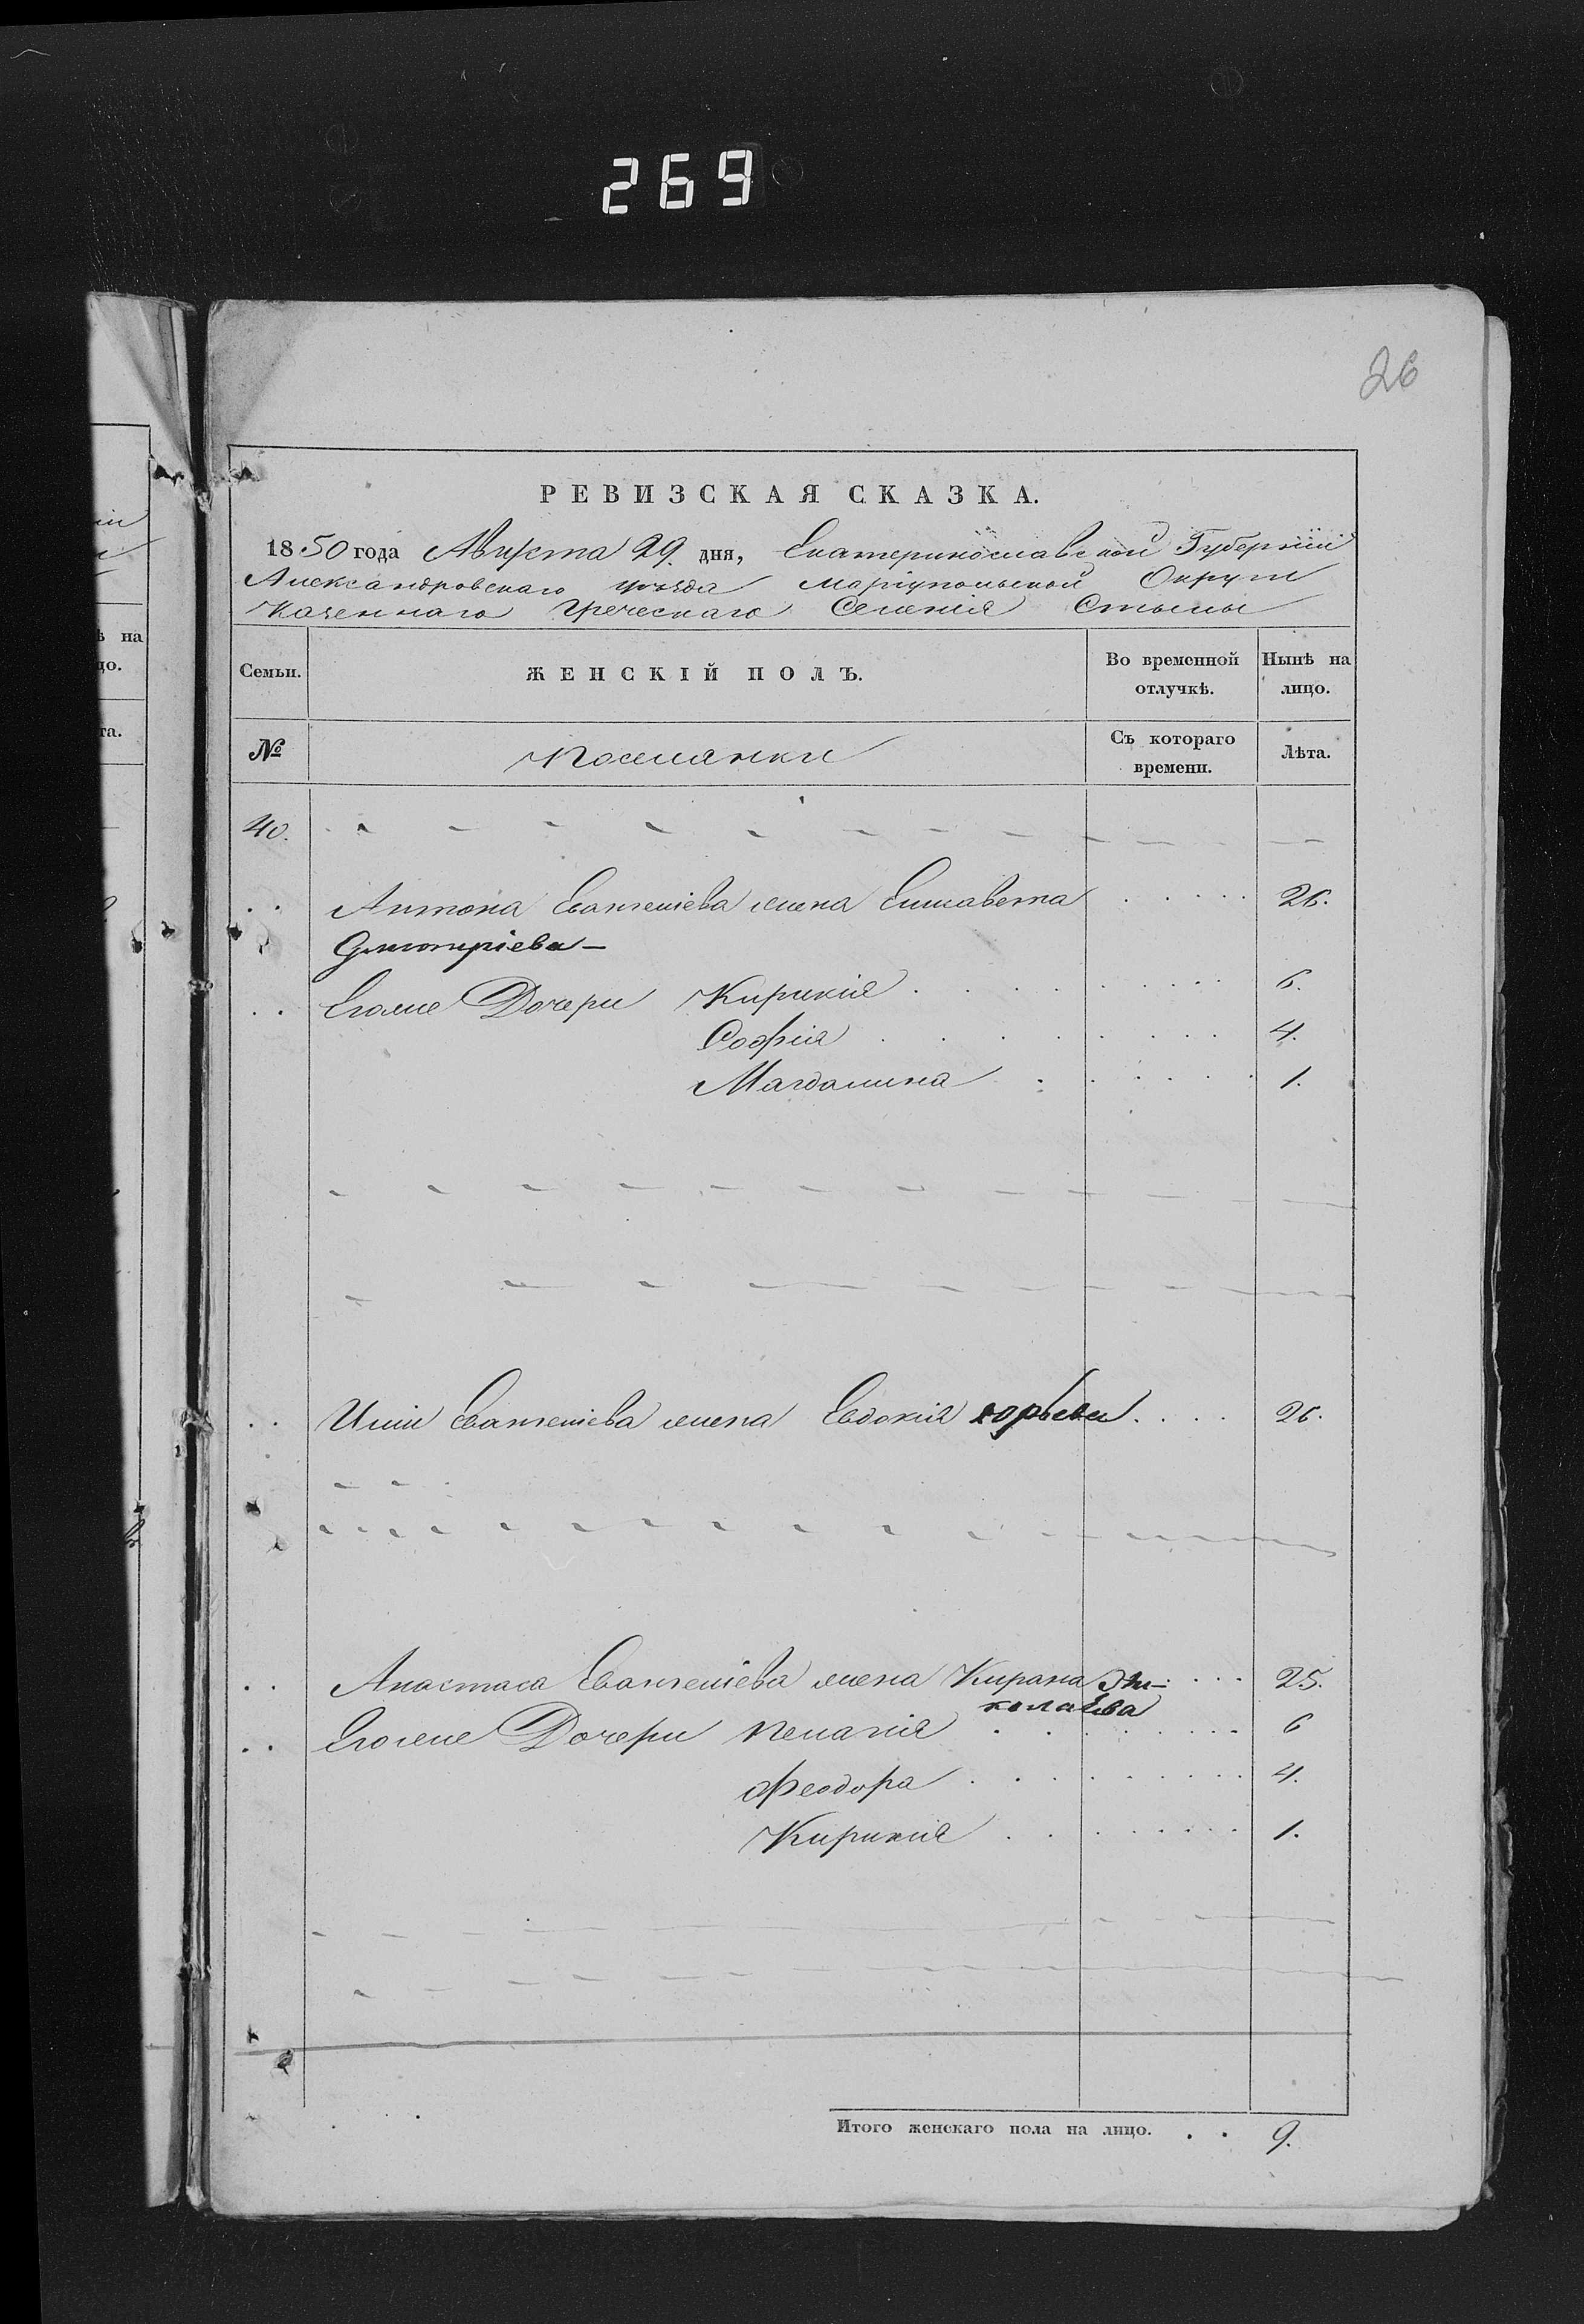 269
26
РЕВИЗСКАЯ СКАЗКА.
1850 года Августа 29. дня, Екатеринославской Губерніи
Александровскаго уѣзда Маріупольской Округи
Казеннаго Греческаго Селенія Стылы
ѣ на
цо.
та.
Семьи.
ЖЕНСКІЙ ПОЛЪ.
Во временной отлучкѣ.
Нынѣ на лицо.
№
Поселянки
Съ котораго времени.
Лѣта.
40.
Антона Евангеліева жена Елисавета 26.
Дмитріева
Егоже Дочери Кирикія 6.
Софія 4.
Магдалина 1.
Иліи Евангеліева жена Евдокія Юрьева 26.
Анастаса Евангеліева жена Кирана Ни-
колаева 25.
Егоже Дочери Пелагія 6
Феодора 4.
Кирикія 1.
Итого женскаго пола на лицо. . . 9.